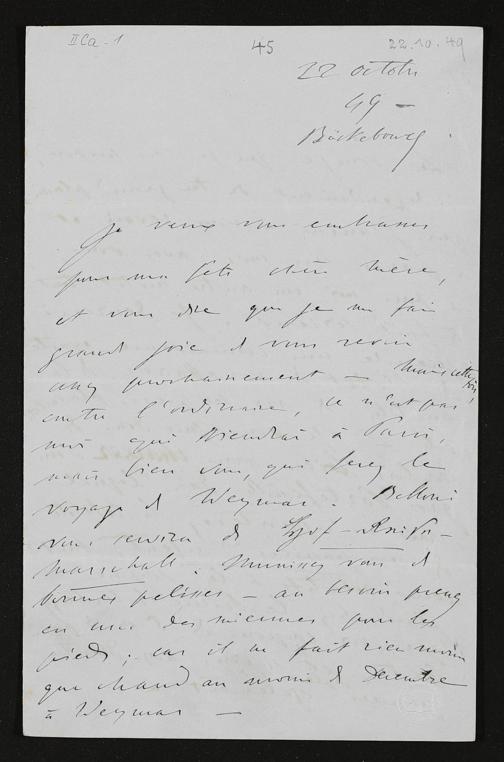 IICa-1
45
22.10.49
22 Octobre
49 —
Bückebourg
Je veux vous embrasser
pour ma fête chère Mère,
et vous dire que je me fais
grande joie de vous revoir
assez prochainement — Mais cette fois,
contre l'ordinaire, ce n'est pas
moi qui viendrai à Paris,
mais bien vous, qui ferez le
voyage de Weymar. Belloni
vous servira de Hof-Reise-
Marschall. Munissez vous de
bonnes pelisses — au besoin prenez
en une des miennes pour les
pieds; car il ne fait rien moins
que chaud au mois de Decembre
à Weymar —